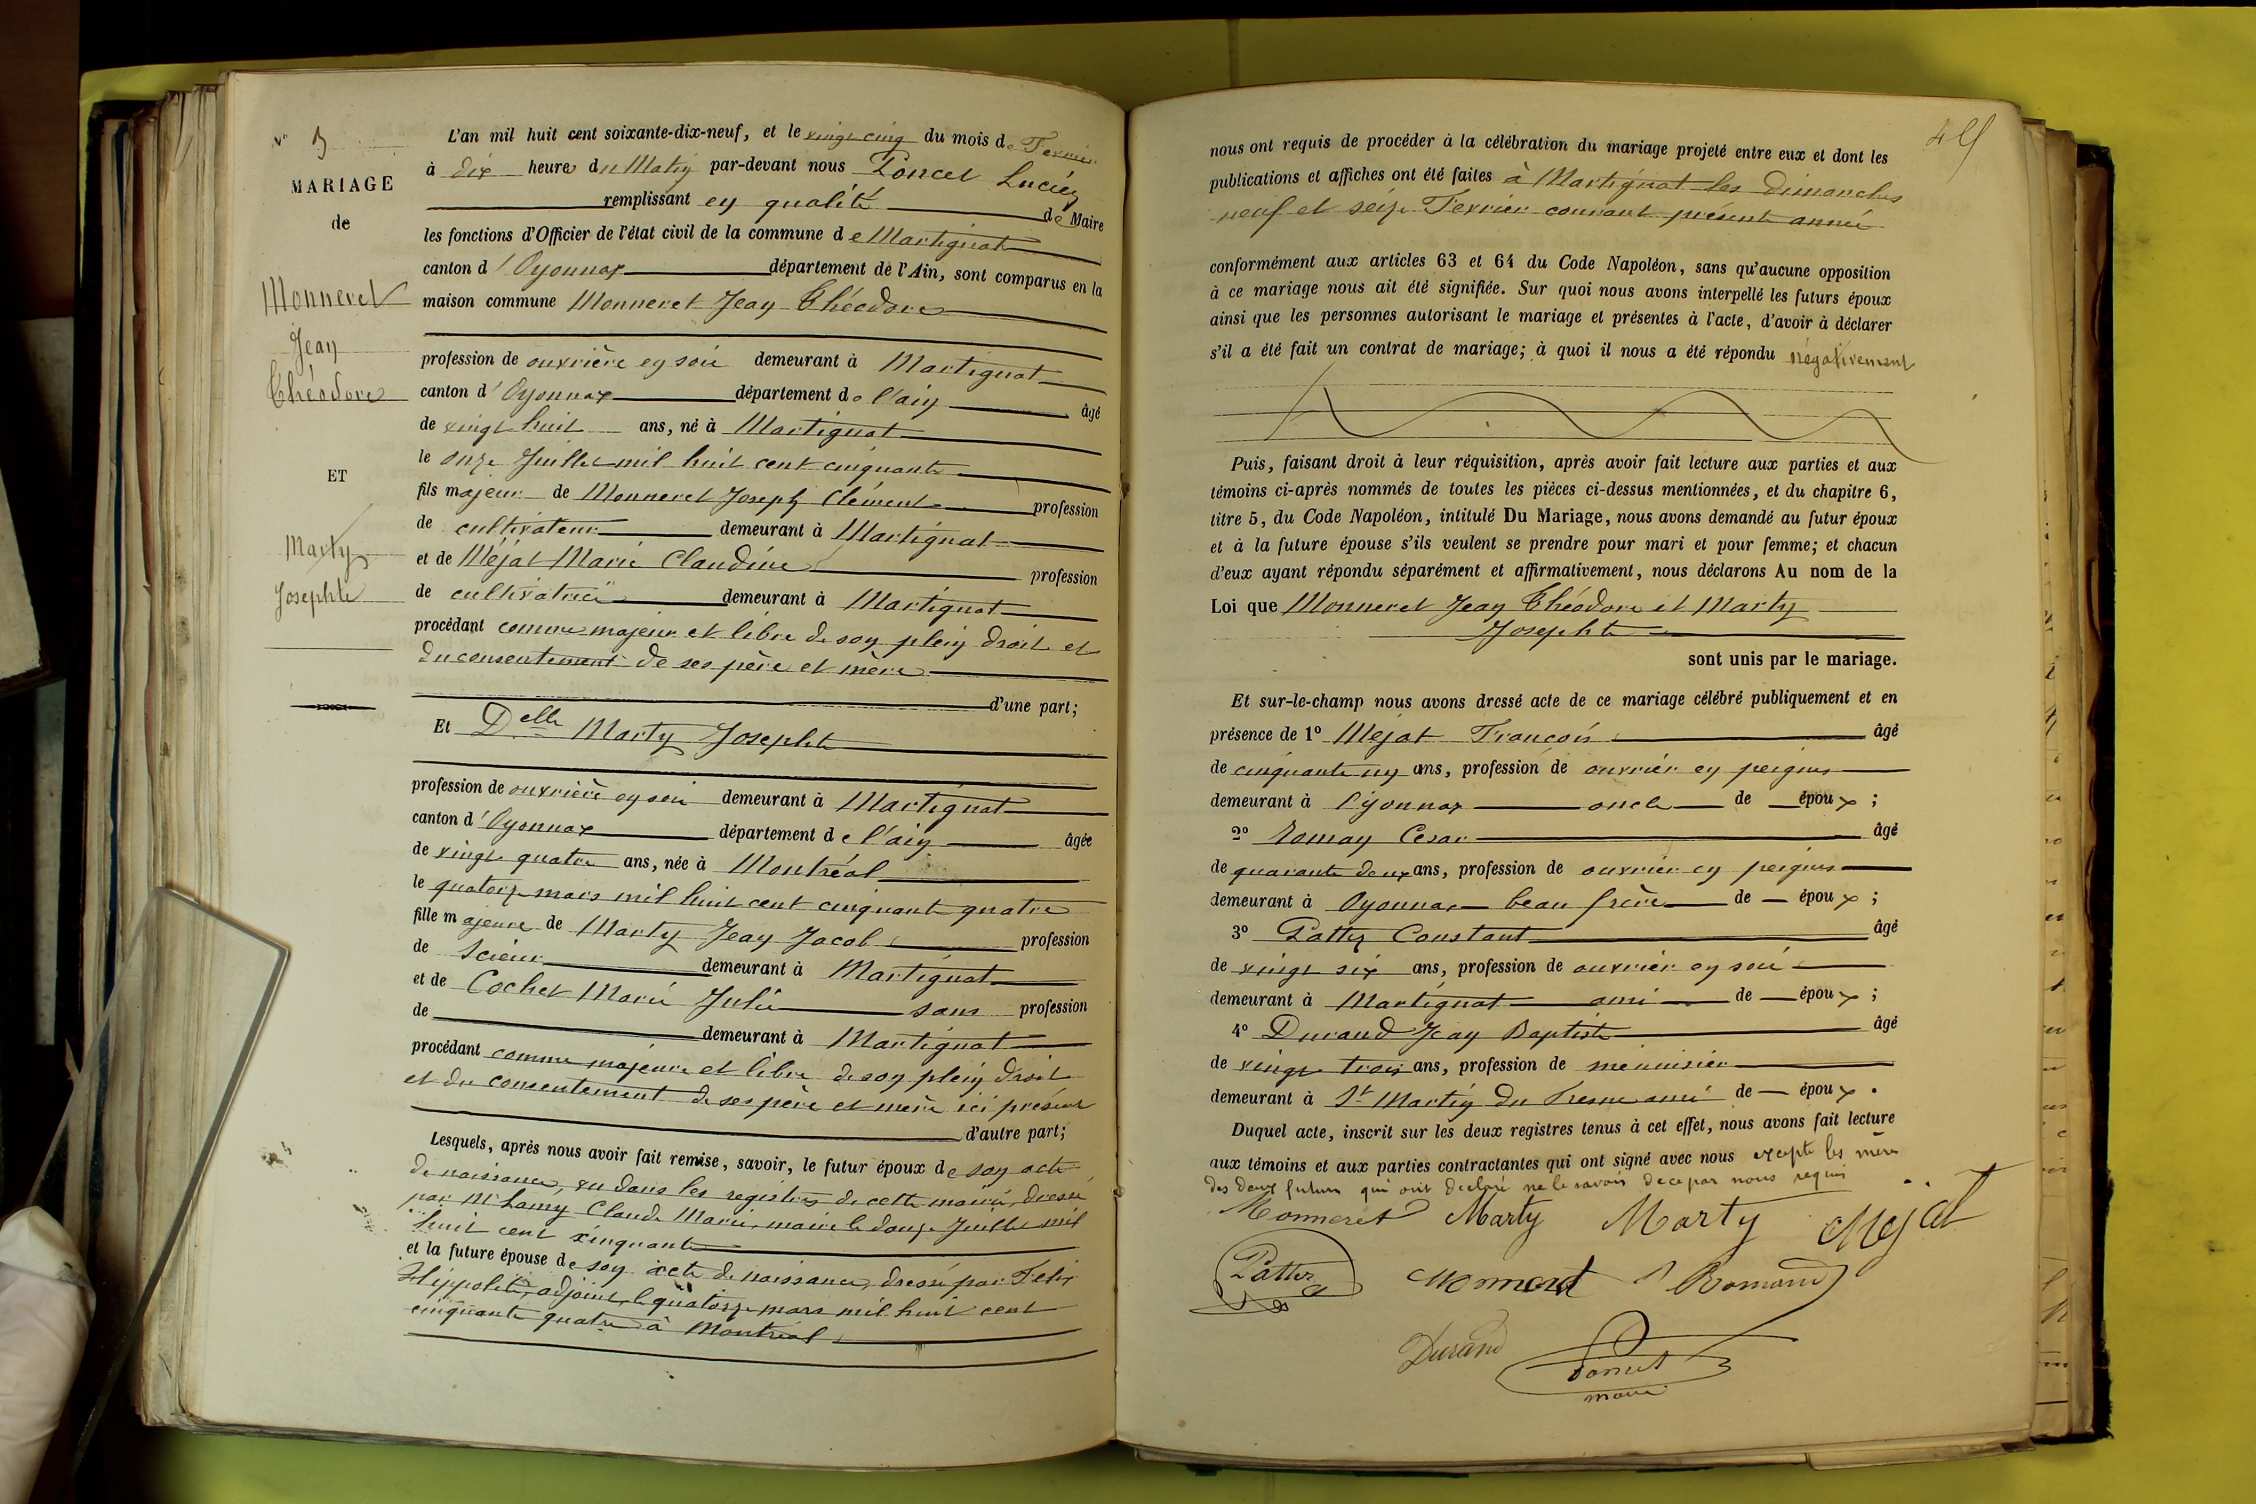 Nº 3
MARIAGE
de
Monneret
Jean
Théodore
ET
Marty
Josephte
L'an mil huit cent soixante-dix-neuf, et le vingt cinq du mois de Fevrier
à dix heures du Matin par-devant nous Poncet Lucien
remplissant en qualité de Maire
les fonctions d'Officier de l'état civil de la commune de Martignat
canton d'Oyonnax département de l'Ain, sont comparus en la
maison commune Monneret Jean Théodore
profession de ouvrière en soie demeurant à Martignat
canton d'Oyonnax département de l'ain âgé
de vingt huit ans, né à Martignat
le onze Juillet mil huit cent cinquante
fils majeur de Monneret Joseph Clément profession
de cultivateur demeurant à Martignat
et de Méjat Marie Claudine profession
de cultivatrice demeurant à Martignat
procédant comme majeur et libre de son plein droit et
du consentement de ses père et mère
d'une part;
Et Delle Marty Josephte
profession de ouvrière en soie demeurant à Martignat
canton d'Oyonnax département de l'ain âgée
de vingt quatre ans, née à Montréal
le quatorze mars mil huit cent cinquante quatre
fille majeure de Marty Jean Jacob profession
de Scieur demeurant à Martignat
et de Cochet Marie Julie sans profession
de demeurant à Martignat
procédant comme majeure et libre de son plein droit
et du consentement de ses père et mère ici présent
d'autre part;
Lesquels, après nous avoir fait remise, savoir, le futur époux de son acte
de naissance, vu dans les registres de cette mairie, dressé
par Mr Lamy Claude Marie, maire le douze Juillet mil
huit cent cinquante
et la future épouse de son acte de naissance, dressé par Felix
Hippolite, adjoint, le quatorze mars mil huit cent
cinquante quatre à Montréal
nous ont requis de procéder à la célébration du mariage projeté entre eux et dont les
publications et affiches ont été faites à Martignat les dimanches
neuf et seize Fevrier courant présente année
conformément aux articles 63 et 64 du Code Napoléon, sans qu'aucune opposition
à ce mariage nous ait été signifiée. Sur quoi nous avons interpellé les futurs époux
ainsi que les personnes autorisant le mariage et présentes à l'acte, d'avoir à déclarer
s'il a été fait un contrat de mariage; à quoi il nous a été répondu négativement
Puis, faisant droit à leur réquisition, après avoir fait lecture aux parties et aux
témoins ci-après nommés de toutes les pièces ci-dessus mentionnées, et du chapitre 6,
titre 5, du Code Napoléon, intitulé Du Mariage, nous avons demandé au futur époux
et à la future épouse s'ils veulent se prendre pour mari et pour femme; et chacun
d'eux ayant répondu séparément et affirmativement, nous déclarons Au nom de la
Loi que Monneret Jean Théodore et Marty
Josephte
sont unis par le mariage.
Et sur-le-champ nous avons dressé acte de ce mariage célébré publiquement et en
présence de 1º Méjat François âgé
de cinquante un ans, profession de ouvrier en peignes
demeurant à Oyonnax oncle de époux;
2º Roman Cesar âgé
de quarante deux ans, profession de ouvrier en peignes
demeurant à Oyonnax beau frère de époux;
3º Pattez Constant âgé
de vingt six ans, profession de ouvrier en soie
demeurant à Martignat ami de époux;
4º Durand Jean Baptiste âgé
de vingt trois ans, profession de menuisier
demeurant à St Martin du Fresne ami de époux.
Duquel acte, inscrit sur les deux registres tenus à cet effet, nous avons fait lecture
aux témoins et aux parties contractantes qui ont signé avec nous excepté les mère
des deux futurs qui ont déclaré ne le savoir de ce par nous requis
Monneret Marty Marty Mejat
Pattez Romand
Durand
Poncet
maire